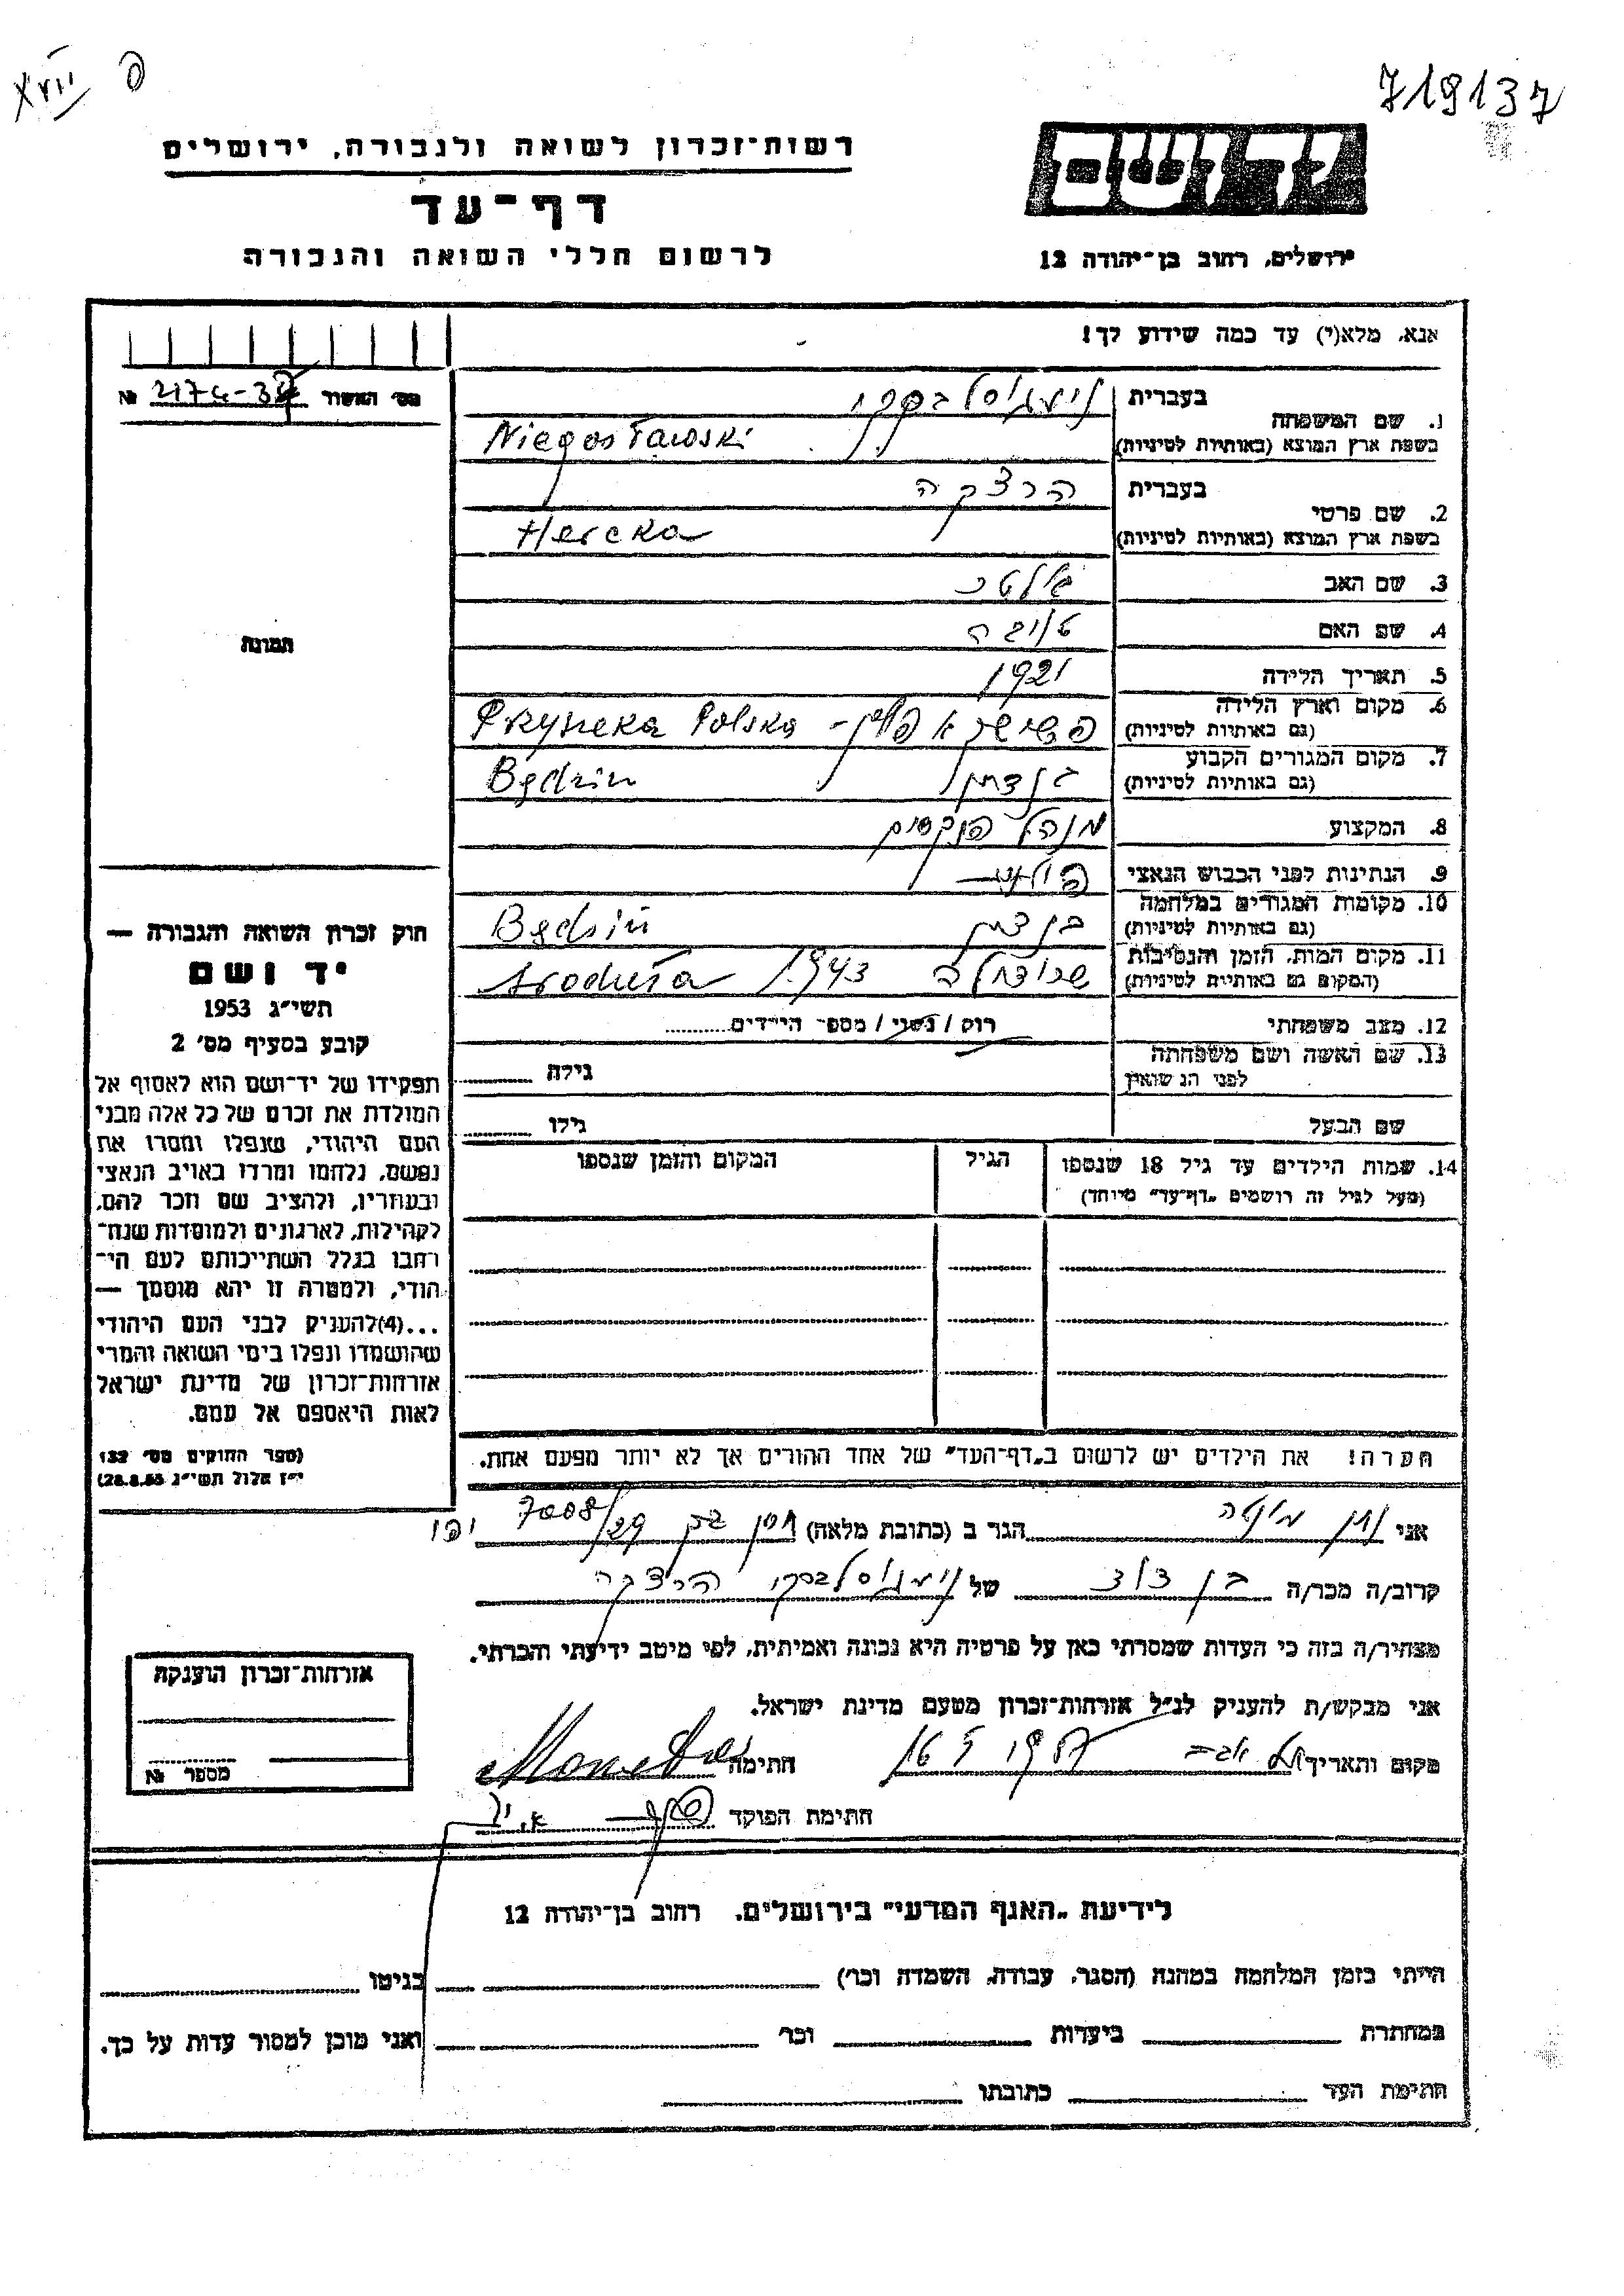 XVII
719137
רשות־זכרון לשואה ולגבורה, ירושלים
דף־עד
לרשום חללי השואה והגבורה
יד ושם
ירושלים, רחוב בן־יהודה 12
אנא, מלא(י) עד כמה שידוע לך!
מס' האשור № 2174-37
תמונה
1. שם המשפחה
בעברית
בשפת ארץ המוצא (באותיות לטיניות) Niegosławski
2. שם פרטי
בעברית הרצקה
בשפת ארץ המוצא (באותיות לטיניות) Hercka
3. שם האב
4. שם האם טויבה
5. תאריך הלידה 1921
6. מקום וארץ הלידה
(גם באותיות לטיניות) Polska
7. מקום המגורים הקבוע
(גם באותיות לטיניות) בנדזין Będzin
8. המקצוע מנהל פנקסים
9. הנתינות לפני הכבוש הנאצי
10. מקומות המגורים במלחמה
(גם באותיות לטיניות) בנדזין Będzin
11. מקום המות, הזמן והנסיבות
(המקום גם באותיות לטיניות) שרודולה 1943 Środula
12. מצב משפחתי רווק / נשוי / מספ־ הילדים
13. שם האשה ושם משפחתה
לפני הנשואין גילה
שם הבעל גילו
14. שמות הילדים עד גיל 18 שנספו הגיל המקום והזמן שנספו
(מעל לגיל זה רושמים „דף־עד" מיוחד)
הערה! את הילדים יש לרשום ב„דף־העד" של אחד ההורים אך לא יותר מפעם אחת.
חוק זכרון השואה והגבורה —
יד ושם
תשי"ג 1953
קובע בסעיף מס' 2
תפקידו של יד־ושם הוא לאסוף אל
המולדת את זכרם של כל אלה מבני
העם היהודי, שנפלו ומסרו את
נפשם, נלחמו ומרדו באויב הנאצי
ובעוזריו, ולהציב שם וזכר להם,
לקהילות, לארגונים ולמוסדות שנח־
רבו בגלל השתייכותם לעם הי־
הודי, ולמטרה זו יהא מוסמך —
...(4)להעניק לבני העם היהודי
שהושמדו ונפלו בימי השואה והמרי
אזרחות־זכרון של מדינת ישראל
לאות היאספם אל עמם.
(ספר החוקים מס' 132
י"ז אלול תשי"ג 28.8.53)
אני הגר ב (כתובת מלאה) 29/7008 יפו
קרוב/ה מכר/ה בן דוד של הרצקה
מצהיר/ה בזה כי העדות שמסרתי כאן על פרטיה היא נכונה ואמיתית, לפי מיטב ידיעתי והכרתי.
אני מבקש/ת להעניק לנ"ל אזרחות־זכרון מטעם מדינת ישראל.
מקום ותאריך תל אביב 16 5 1957 חתימה
חתימת הפוקד
אזרחות־זכרון הוענקה
מספר №
לידיעת „האגף המדעי" בירושלים. רחוב בן־יהודה 12
הייתי בזמן המלחמה במחנה (הסגר, עבודה, השמדה וכו') בגיטו
במחתרת ביערות וכו' ואני מוכן למסור עדות על כך.
חתימת העד כתובתו